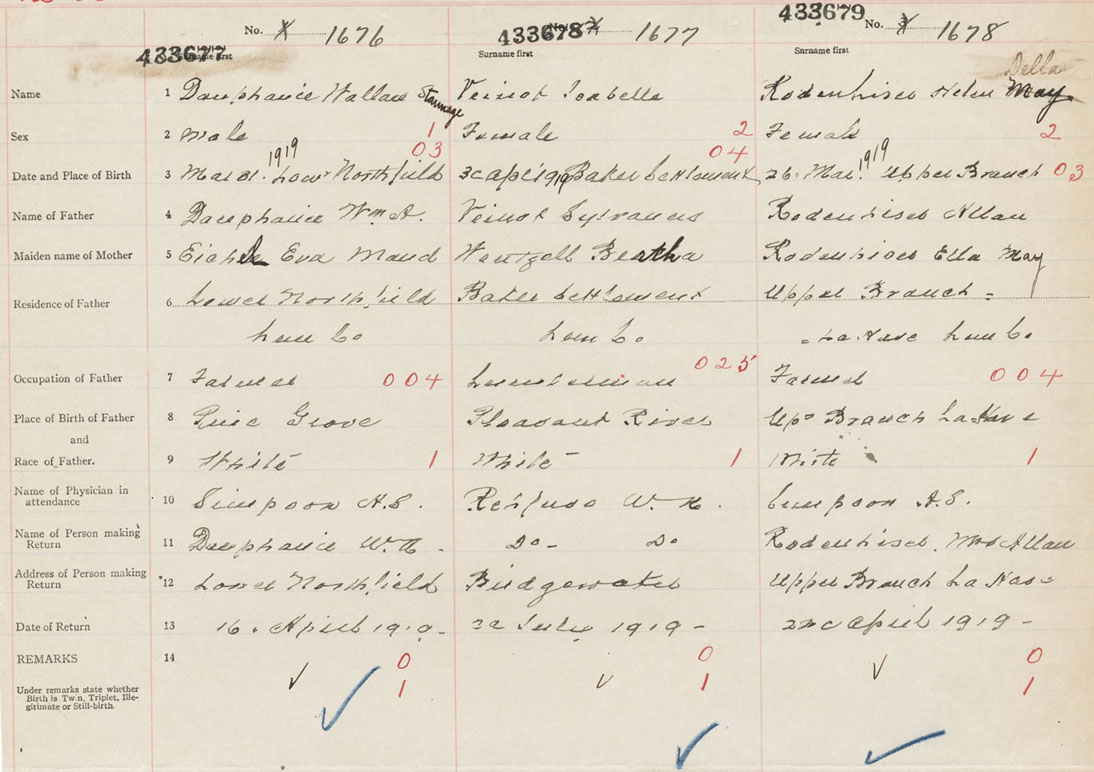 433677 No. X 1676 433678 X 1677 433679 No. X 1678
Surname first Surname first Surname first
Della
Name 1 Dauphanie Wallace Stannage Veinot Isabelle Rodenhiser Helen May
Sex 2 Male 1 Female 2 Female 2
03 04
1919 1919
Date and Place of Birth 3 Mar 31. Low Northfield 30 Apl 1919 Baker Settlement 26. Mar. Upper Branch 03
Name of Father 4 Dauphanie Wm A. Veinot Sylvanus Rodenhiser Allan
Maiden name of Mother 5 Eva Maud Wentzell Bertha Rodenhiser Ella May
Residence of Father 6 Lower Northfield Baker Settlement Upper Branch =
Lun Co Lun Co = La Have Lun Co.
025
Occupation of Father 7 Farmer 004 Lumberman Farmer 004
Place of Birth of Father 8 Pine Grove Pleasant River Up Branch La Have
and
Race of Father. 9 White 1 White 1 White 1
Name of Physician in 10 Simpson A.S. Rehfuss W. N. Simpson A.S.
attendance
Name of Person making 11 Dauphanie W. A. Do - Do Rodenhiser. Mrs Allan
Return
Address of Person making 12 Lower Northfield Bridgewater Upper Branch La Have
Return
Date of Return 13 16. April 1919 - 22 July 1919 - 22 April 1919 -
REMARKS 14 0 0 0
Under remarks state whether 1 1 1
Birth is Twin, Triplet, Ille-
gitimate or Still-birth.